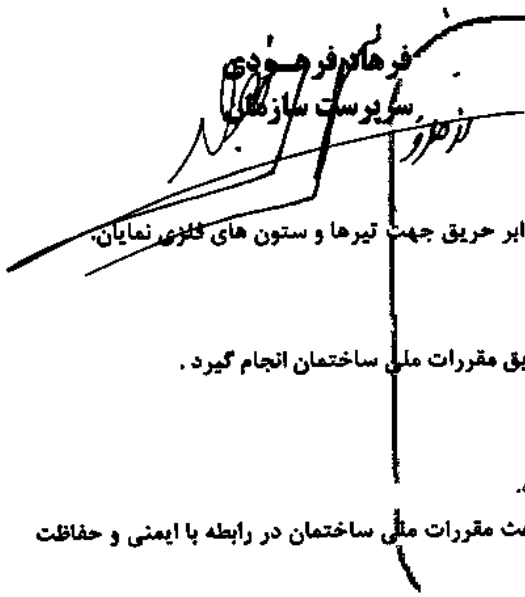 فرهاد فرهودی
سرپرست سازمان
از طرف
ابر حریق جهت تیرها و ستون های فلزی نمایان.
یق مقررات ملی ساختمان انجام گیرد .
حث مقررات ملی ساختمان در رابطه با ایمنی و حفاظت